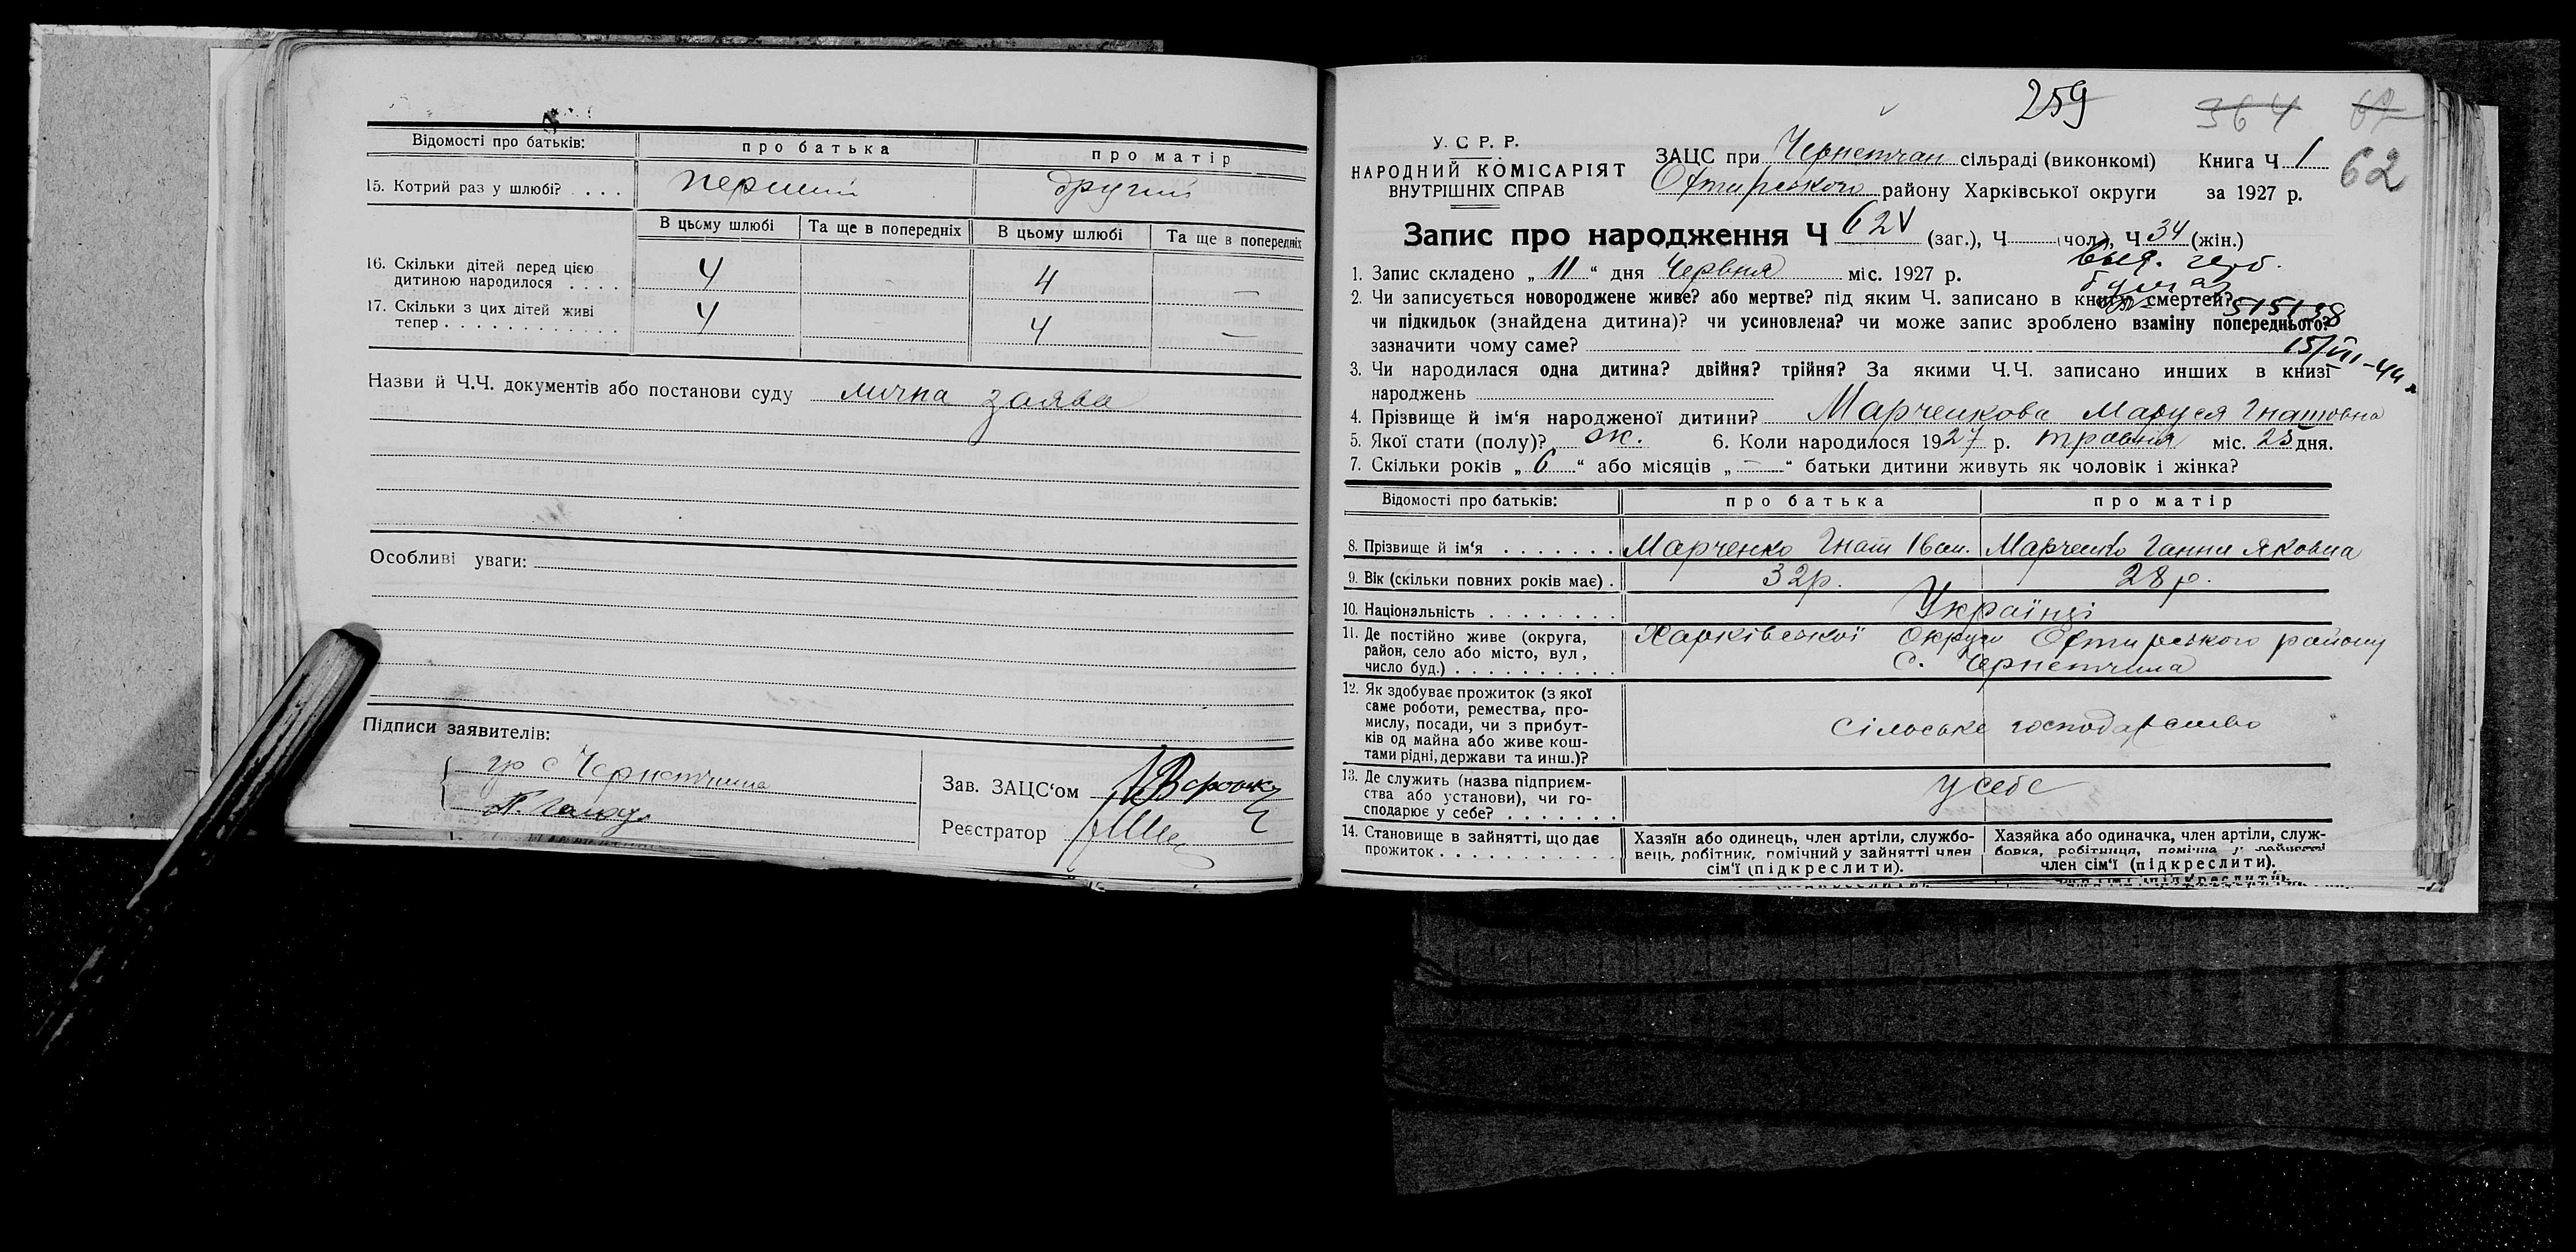 Відомості про батьків: про батька про матір
15. Котрий раз у шлюбі? . . . . перший другий
В цьому шлюбі Та ще в попередніх В цьому шлюбі Та ще в попередніх
16. Скільки дітей перед цією
дитиною народилося . . . . 4 4 —
17. Скільки з цих дітей живі
тепер . . . . . . . . . . . . . 4 4 —
Назви й Ч.Ч. документів або постанови суду лична заява
Особливі уваги:
Підписи заявителів:
гр с Чернетчина
Зав. ЗАЦС'ом
Реєстратор
259 364 62
У. С Р. Р.
НАРОДНИЙ КОМІСАРІЯТ
ВНУТРІШНІХ СПРАВ
ЗАЦС при Чернетчан сільраді (виконкомі) Книга Ч 1
Охтирського району Харківської округи за 1927 р.
62
Запис про народження Ч 62 (заг.), Ч (чол.), Ч 34 (жін.)
1. Запис складено „ 11 “ дня Червня міс. 1927 р.
2. Чи записується новороджене живе? або мертве? під яким Ч. записано в книгу смертей?
чи підкидьок (знайдена дитина)? чи усиновлена? чи може запис зроблено взаміну попереднього?
зазначити чому саме?
15/VII-44
3. Чи народилася одна дитина? двійня? трійня? За якими Ч.Ч. записано инших в книзі
народжень
4. Прізвище й ім'я народженої дитини? Марченкова Маруся Гнатовна
5. Якої стати (полу)? ж. 6. Коли народилося 1927 р. травня міс. 25 дня.
7. Скільки років „ 6 “ або місяців „ — “ батьки дитини живуть як чоловік і жінка?
Відомості про батьків: про батька про матір
8. Прізвище й ім'я . . . . . . . Марченко Гнат Іван. Марченко Ганни Яковна
9. Вік (скільки повних років має) . 32р. 28р.
10. Національність . . . . . . . . Українці
11. Де постійно живе (округа,
район, село або місто, вул.,
число буд.) . . . . . . . . . . Харківської Округи Охтирського району
с. Чернетчина
12. Як здобуває прожиток (з якої
саме роботи, ремества, про-
мислу, посади, чи з прибут-
ків од майна або живе кош-
тами рідні, держави та инш.)?
сільське господарство
13. Де служить (назва підприєм-
ства або установи), чи го-
сподарює у себе? . . . . . . .
у себе
14. Становище в зайнятті, що дає
прожиток . . . . . . . . . . .
Хазяїн або одинець, член артіли, службо-
вець, робітник, помічний у зайнятті член
сім'ї (підкреслити).
Хазяйка або одиначка, член артіли, служ-
бовка, робітниця, помічна у зайнятті
член сім'ї (підкреслити).